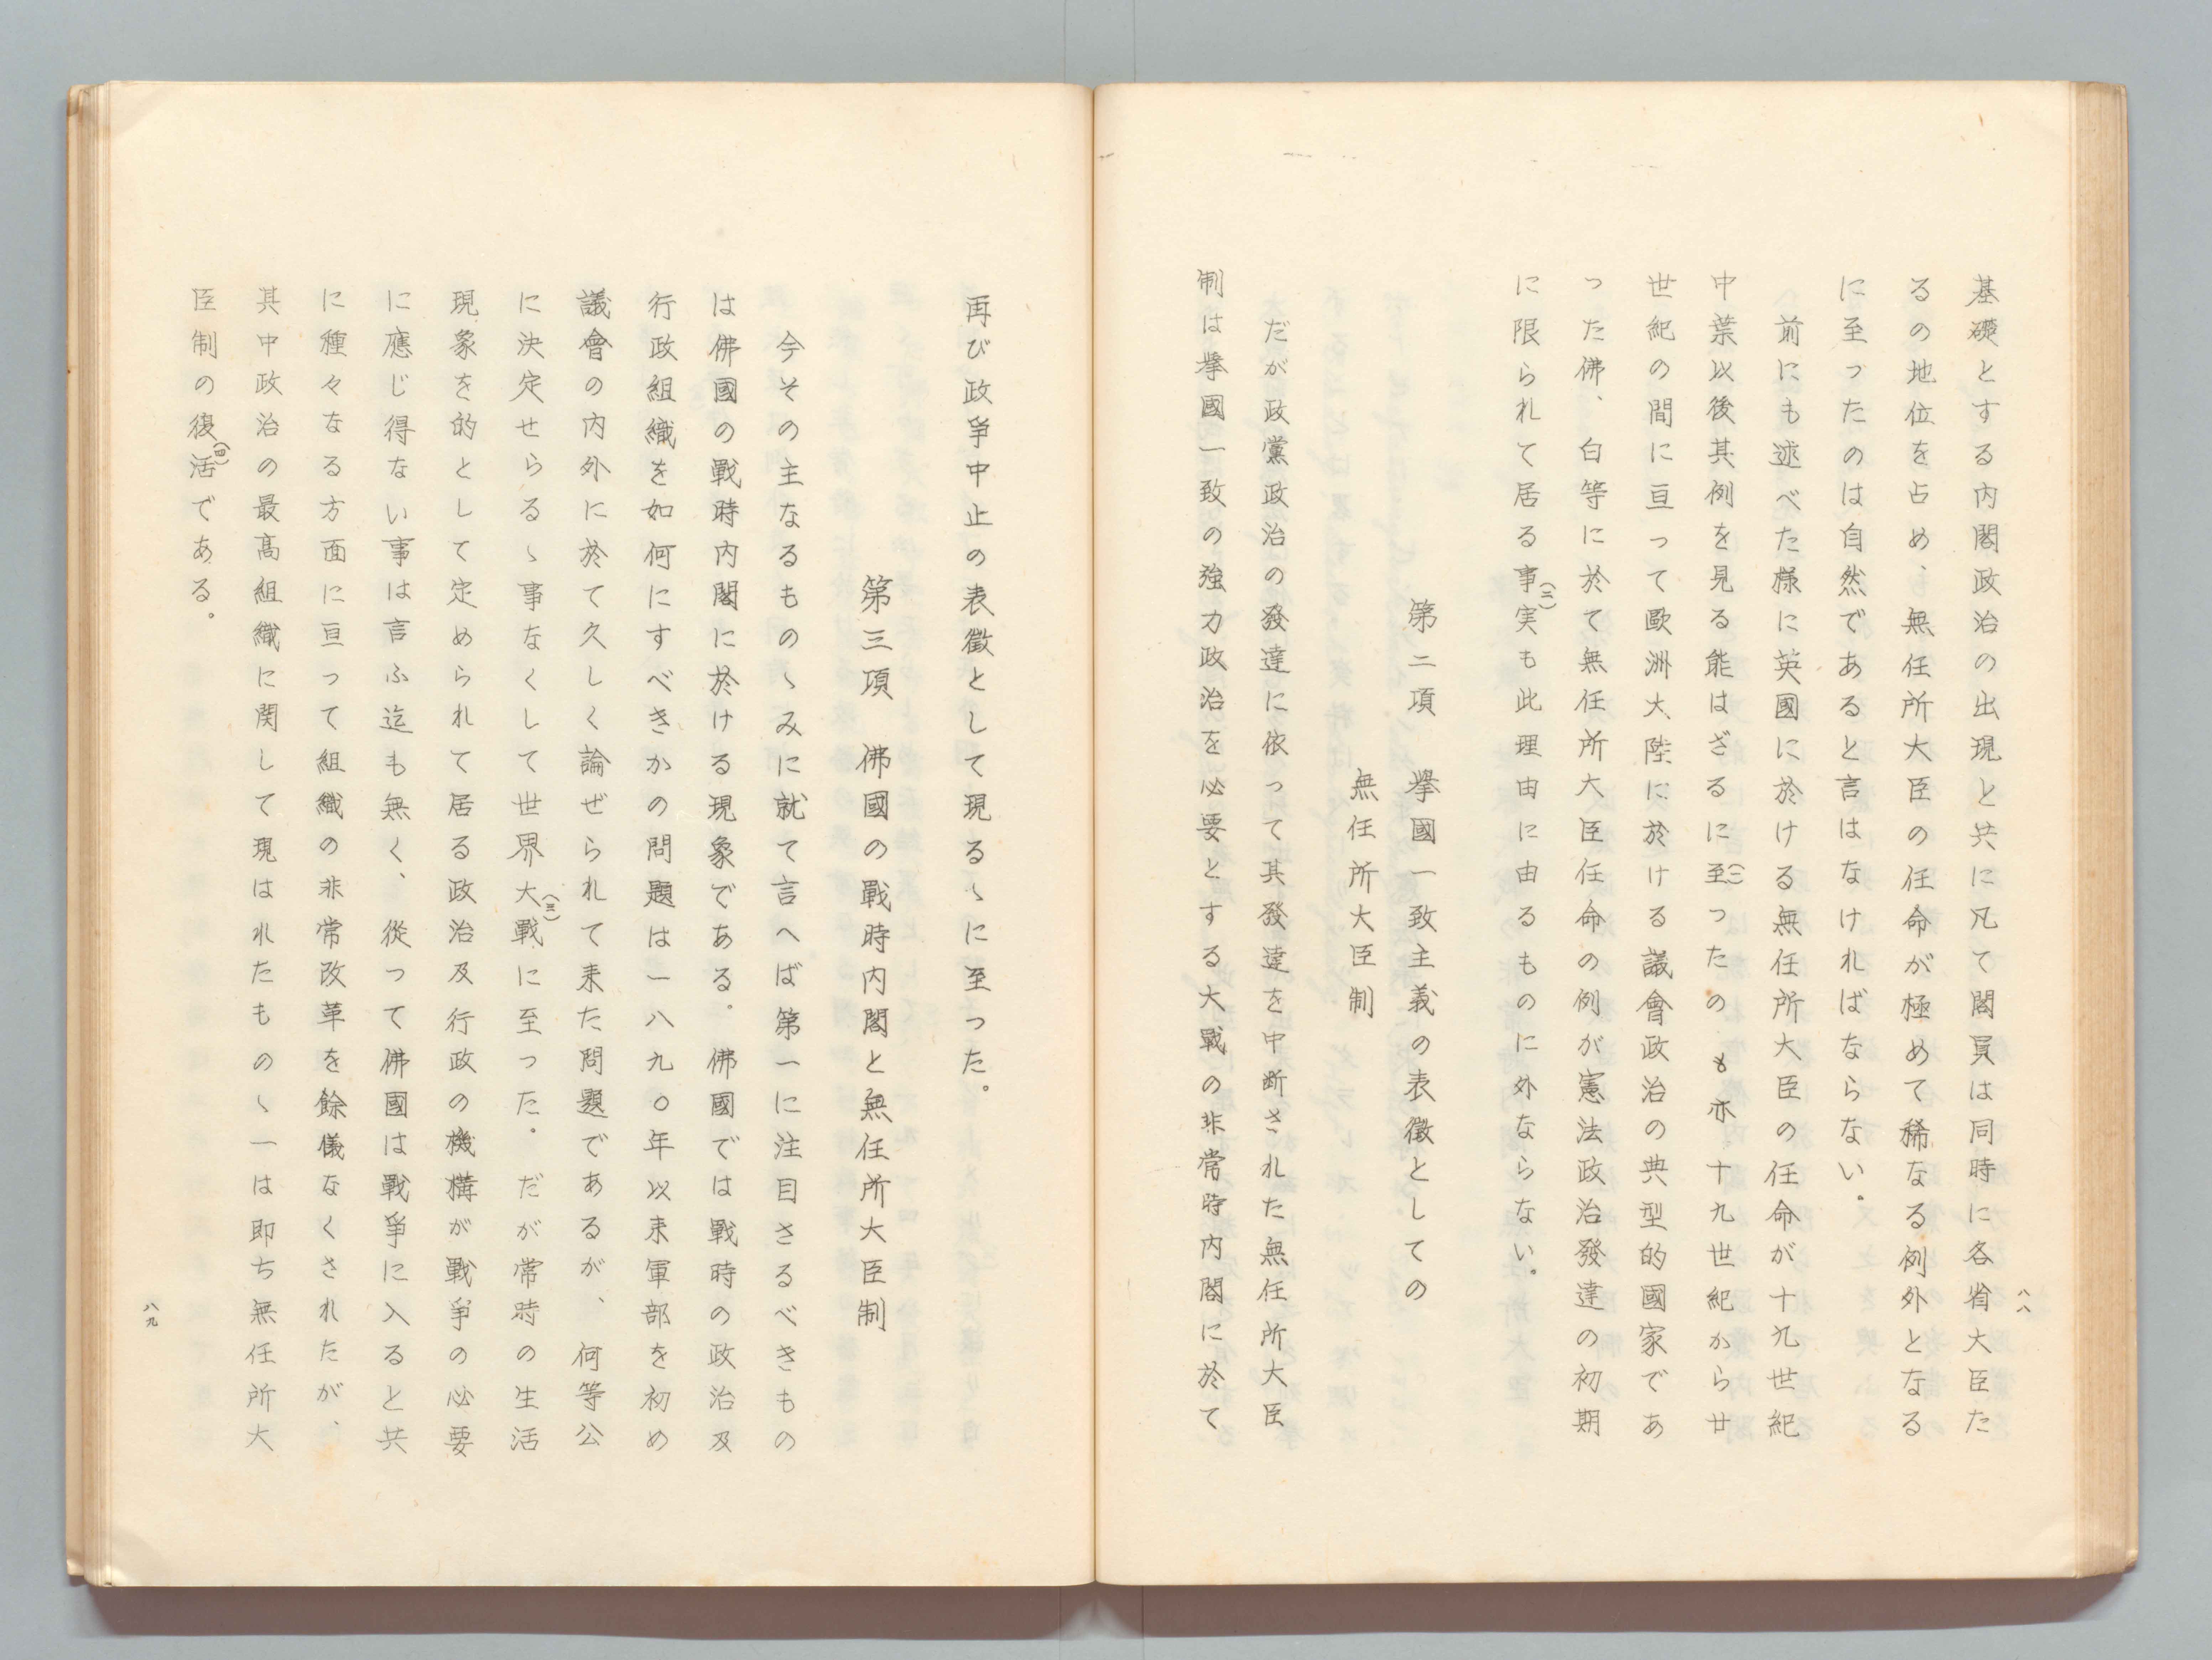 八八
基礎とする内閣政治の出現と共に凡て閣員は同時に各省大臣た
るの地位を占め、無任所大臣の任命が極めて稀なる例外となる
に至ったのは自然であると言はなければならない。
前にも述べた様に英國に於ける無任所大臣の任命が十九世紀
中葉以後其例を見る能はざるに至(一)ったのも亦十九世紀から廿
世紀の間に亘って歐洲大陸に於ける議會政治の典型的國家であ
った佛、白等に於て無任所大臣任命の例が憲法政治發達の初期
に限られて居る事(二)実も此理由に由るものに外ならない。
第二項 擧國一致主義の表徴としての
無任所大臣制
だが政黨政治の發達に依って其發達を中断された無任所大臣
制は擧國一致の強力政治を必要とする大戰の非常時内閣に於て
再び政爭中止の表徴として現るゝに至った。
第三項 佛國の戰時内閣と無任所大臣制
今その主なるものゝみに就て言へば第一に注目さるべきもの
は佛國の戰時内閣に於ける現象である。佛國では戰時の政治及
行政組織を如何にすべきかの問題は一八九〇年以来軍部を初め
議會の内外に於て久しく論ぜられて来た問題であるが、何等公
に決定せらるゝ事なくして世界大(三)戰に至った。だが常時の生活
現象を的として定められて居る政治及行政の機構が戰爭の必要
に應じ得ない事は言ふ迄も無く、從って佛國は戰爭に入ると共
に種々なる方面に亘って組織の非常改革を餘儀なくされたが、
其中政治の最高組織に関して現はれたものゝ一は即ち無任所大
臣制の復(四)活である。
八九